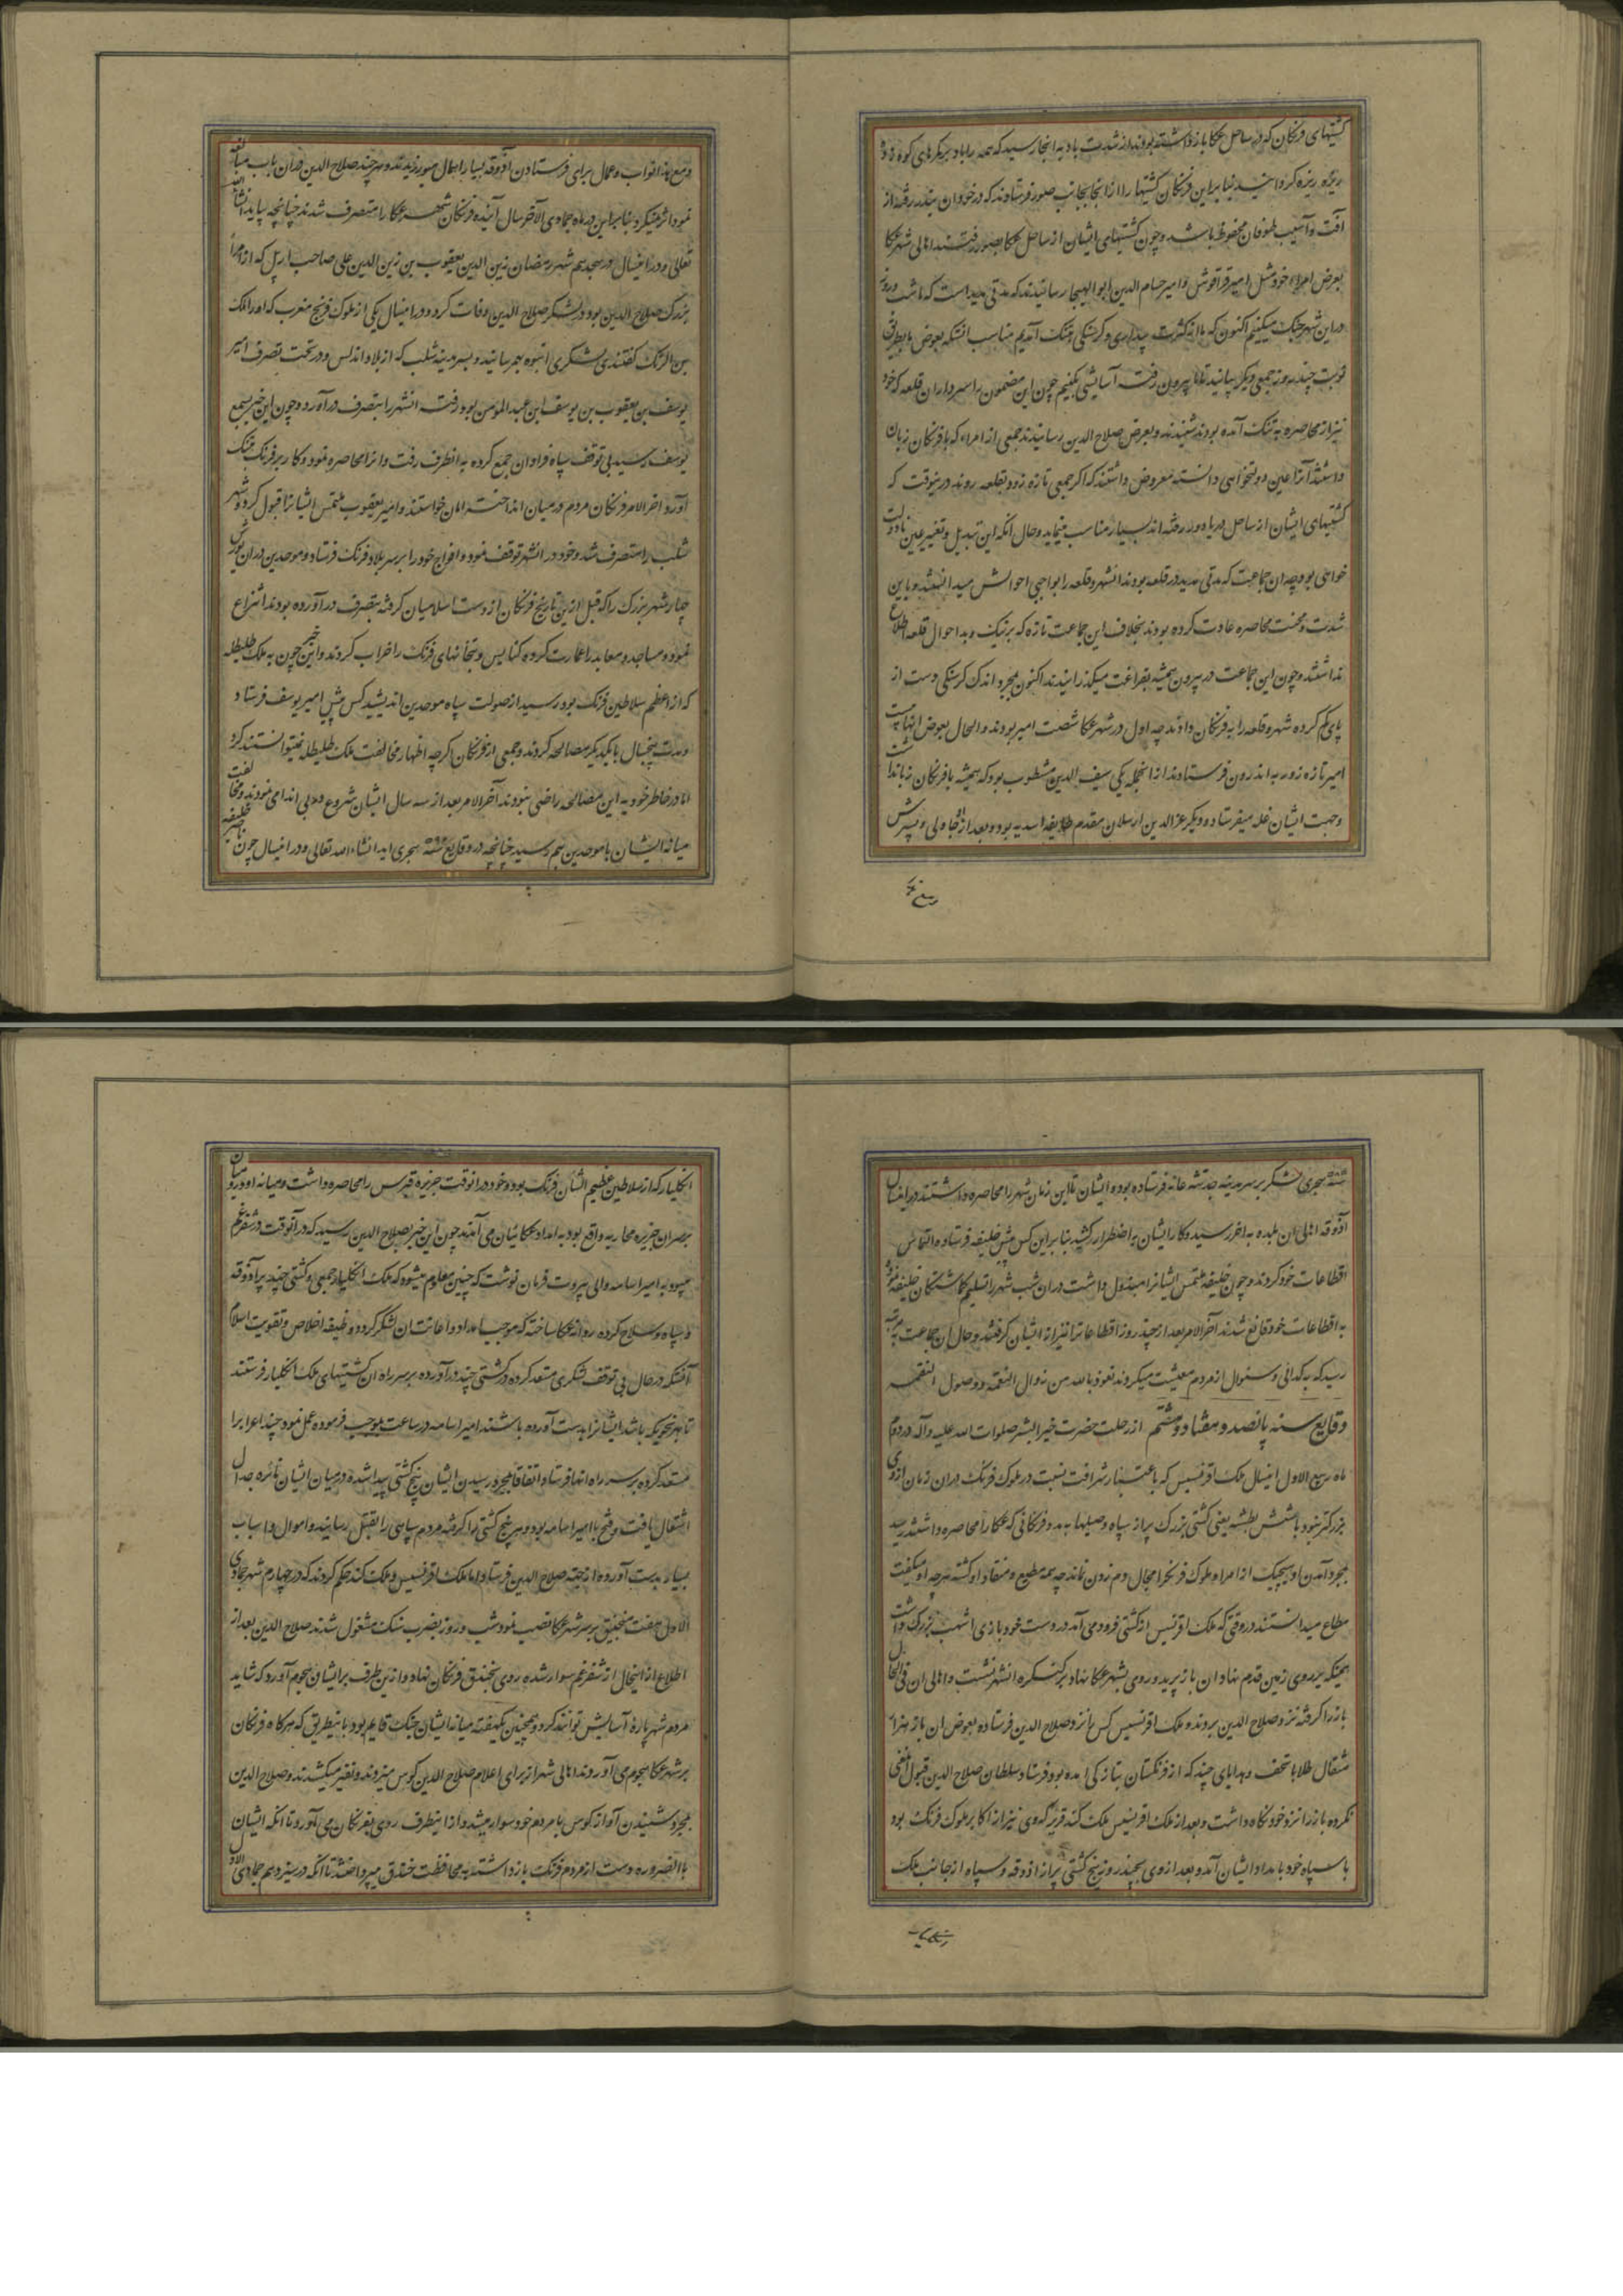 کشتیهای فرنگان که در ساحل عکا بازداشته بودند از شدت باد به انجا رسید که همه را باد بر یکدیگر های کوه زد و
ریزه ریزه کرد بنابراین فرنگان کشتیها را از انجا بجانب صور فرستادند که در خور ان بندر رفته از
آفت و آسیب طوفان محفوظ باشد و چون کشتیهای ایشان از ساحل عکا بصور رفتند اهالی شهر عکا
بعرض امراء خود مثل امیر قراقوش و امیر حسام الدین ابو الهیجا رسانیدند که مدتی مدید است که ما شب و روز
در این شهر جنگ میکنیم اکنون که ما از کثرت بیداری و گرسنگی بتنگ آمدیم مناسب انستکه بعوض ما بطریق
نوبت چند روز جمعی دیگر بیایند تا ما بیرون رفته آسایشی بکنیم چون این مضمون را سرداران قلعه که خود
نیز از محاصره به تنگ آمده بودند شنیدند و بعرض صلاح الدین رسانیدند جمعی از امراء که با فرنگان زبان
داشتند آنرا عین دولتخواهی دانسته معروض داشتند که اگر جمعی تازه زود بقلعه روند درینوقت که
کشتیهای ایشان از ساحل دریا دور رفته اند بسیار مناسب مینماید و حال انکه این تبدیل و تغییر عین نادولت
خواهی بود چه ان جماعت که مدتی مدید در قلعه بودند انشهر و قلعه را بواجبی احوالش میدانستند و باین
شدت و محنت محاصره عادت کرده بودند بخلاف این جماعت تازه که بر نیک و بد احوال قلعه اطلاع
نداشتند و چون این جماعت در بیرون همیشه بفراغت میگذرانیدند اکنون بمجرد اندک گرسنگی دست از
پای گم کرده شهر و قلعه را به فرنگان دادند چه اول در شهر عکا شصت امیر بودند و الحال بعوض انها بیست
امیر تازه زور به اندرون فرستادند از انجمله یکی سیف الدین مشطوب بود که همیشه با فرنگان زباندا شت
و جهت ایشان غله میفرستاد و دیگر عز الدین ارسلان مقدم طایفه اسدیه بود و بعد از جاولی و پسرش
و مع هذا نواب و عمال برای فرستادن آذوقه بسیار اهمال میورزیدند و هر چند صلاح الدین در ان باب مبالغه
نمود اثر نمیکرد بنابراین در ماه جمادی الآخر سال آینده فرنگان شهر عکا را متصرف شدند چنانچه بیاید انشا الله
تعالی و در اینسال در هجدهم شهر رمضان زین الدین یعقوب بن زین الدین علی صاحب اربل که از امراء
بزرگ صلاح الدین بود در لشکر صلاح الدین وفات کرد و در اینسال یکی از ملوک فرنج مغرب که او را ملک
بن الرنک گفتندی لشکری انبوه بهم رسانید و بسر مدینه شلب که از بلاد اندلس و در تحت تصرف امیر
یوسف بن یعقوب بن یوسف ابن عبد المومن بود رفته انشهر را بتصرف در آورد و چون این خبر بسمع
یوسف رسید بی توقف سپاه فراوان جمع کرده به انطرف رفت و انرا محاصره نمود و کار بر فرنگ تنگ
آورد اخر الامر فرنگان مردم در میان انداخته امان خواستند و امیر یعقوب ملتمس ایشانرا قبول کرد و شهر
شلب را متصرف شد و خود در انشهر توقف نمود و افواج خود را بر سر بلاد فرنگ فرستاد و موحدین در ان یورش
چهار شهر بزرگ را که قبل ازین تاریخ فرنگان از دست اسلامیان گرفته بتصرف در آورده بودند انتزاع
نمود و مساجد و معابد را عمارت کرده کنایس و بتخانهای فرنگ را خراب کردند و این خبر چون به ملک طلیطله
که از اعظم سلاطین فرنگ بود رسید از صولت سپاه موحدین اندیشید کس پیش امیر یوسف فرستاد
و مدت پنجسال با یکدیگر مصالحه کردند و جمعی از فرنگان اگر چه اظهار مخالفت ملک طلیطله نمیتوانستند کرد
اما در خاطر خود به این مصالحه راضی نبودند آخر الامر بعد از سه سال ایشان شروع در بی اندامی نمودند و مخالفت
میانه ایشان با موحدین بهم رسید چنانچه در وقایع سنه هجری اید انشاء الله تعالی و در اینسال چون خلیفه ناصر
سنه ۵۸۵ هجری لشکر بر سر مدینه حدیثه عانه فرستاده بود و ایشان تا این زمان شهر را محاصره داشتند در اینسال
آذوقه اهالی ان بلده به اخر رسید و کار ایشان به اضطرار کشید بنابراین کس پیش خلیفه فرستاده و التماس
اقطاعات خود کردند و چون خلیفه ملتمس ایشانرا مبذول داشت در ان شب شهر را تسلیم گماشتگان خلیفه نموده
به اقطاعات خود قانع شدند آخر الامر بعد از چند روز اقطاعات را نیز از ایشان گرفتند و حال ان جماعت به مرتبه
رسید که به گدائی و سئوال از مردم معیشت میکردند نعوذ بالله من زوال النعمه و وصول النقمه
وقایع سنه پانصد و هفتاد و هشتم از رحلت حضرت خیر البشر صلوات الله علیه و آله در دوم
ماه ربیع الاول اینسال ملک افرنسیس که باعتبار شرافت نسبت در ملوک فرنگ در ان زمان از وی
بزرگتر نبود با شش بطسه یعنی کشتی بزرگ پر از سپاه و صیلها به مدد فرنگانی که عکا را محاصره داشتند رسید
بمجرد آمدن او هیچیک از امراء ملوک فرنگ را مجال دم زدن نماند چه همه مطیع و منقاد او گشته هر چه او میگفت
مطاع میدانستند در وقتی که ملک افرنسیس از کشتی فرود می آمد در دست خود بازی اشهب بزرگ داشت
همینکه بر روی زمین قدم نهاد ان باز پرید و روی بشهر عکا نهاد بر کنگره انشهر نشست و اهالی ان فی الحال
باز را گرفته نزد صلاح الدین بردند و ملک افرنسیس کس نزد صلاح الدین فرستاده بعوض ان باز هزار
مثقال طلا با تحف و هدایای چند که از فرنگستان بتازگی امده بود فرستاد و سلطان صلاح الدین قبول انمعنی
نکرده باز را نزد خود نگاه داشت و بعد از ملک افرنسیس ملک کند فریز که وی نیز از اکابر ملوک فرنگ بود
با سپاه خود بامداد ایشان آمد و بعد از وی بچند روز پنج کشتی پر از اذوقه و سپاه از جانب ملک
انکلیار که از سلاطین عظیم الشان فرنگ بود و خود در انوقت جزیره قبرس را محاصره داشت و میانه او و فرمان
بر سر ان جزیره محاربه واقع بود به امداد عکائیان می آمدند چون این خبر بصلاح الدین رسید که در آنوقت در شفرعم
میبود به امیر اسامه والی بیروت فرمان نوشت که چنین معلوم میشود که ملک انکلیار جمعی را و کشتی چند پر آذوقه
و سپاه و سلاح کرده روانه عکا ساخته که موجب امداد و اعانت ان لشکر گردد و وظیفه اخلاص و تقویت اسلام
آنستکه در حال بی توقف لشکری مستعد کرده در کشتی چند در آورده بر سر راه ان کشتیهای ملک انکلیار فرستند
تا بهر نحویکه باشد ایشانرا بدست آورده باشند امیر اسامه در ساعت بموجب فرموده عمل نمود چند اعرابرا
مستعد کرده بر سر راه انها فرستاد و اتفاقا بمجرد رسیدن ایشان پنج کشتی پیدا شده در میان ایشان نائره جدال
اشتعال یافت و فتح با امیر اسامه بود و هر پنج کشتی را گرفته مردم سپاهی را بقتل رسانید و اموال و اسباب
بسیار بدست آورده از جهة صلاح الدین فرستاد و اما ملک افرنسیس و ملک کند حکم کردند که در چهارم شهر جمادی
الاول هفت منجنیق بر سر شهر عکا نصب نمود شب و روز بضرب سنگ مشغول شدند صلاح الدین بعد از
اطلاع از اینحال از شفرعم سوار شده روی بخندق فرنگان نهاد و ازین طرف بر ایشان هجوم آورد که شاید
مردم شهر پارهٔ آسایش توانند کرد و همچنین یکهفته میانه ایشان جنگ قایم بود باینطریق که هر گاه فرنگان
بر شهر عکا هجوم می آوردند اهالی شهر از برای اعلام صلاح الدین کوس میزدند و نفیر میکشیدند و صلاح الدین
بمجرد شنیدن آواز کوس با مردم خود سوار میشد و از اینطرف روی بفرنگان می آورد تا آنکه ایشان
باالضروره دست از مردم فرنگ بازداشته به محافظت خندق میپرداختند تا انکه در سیزدهم جمادی الاول